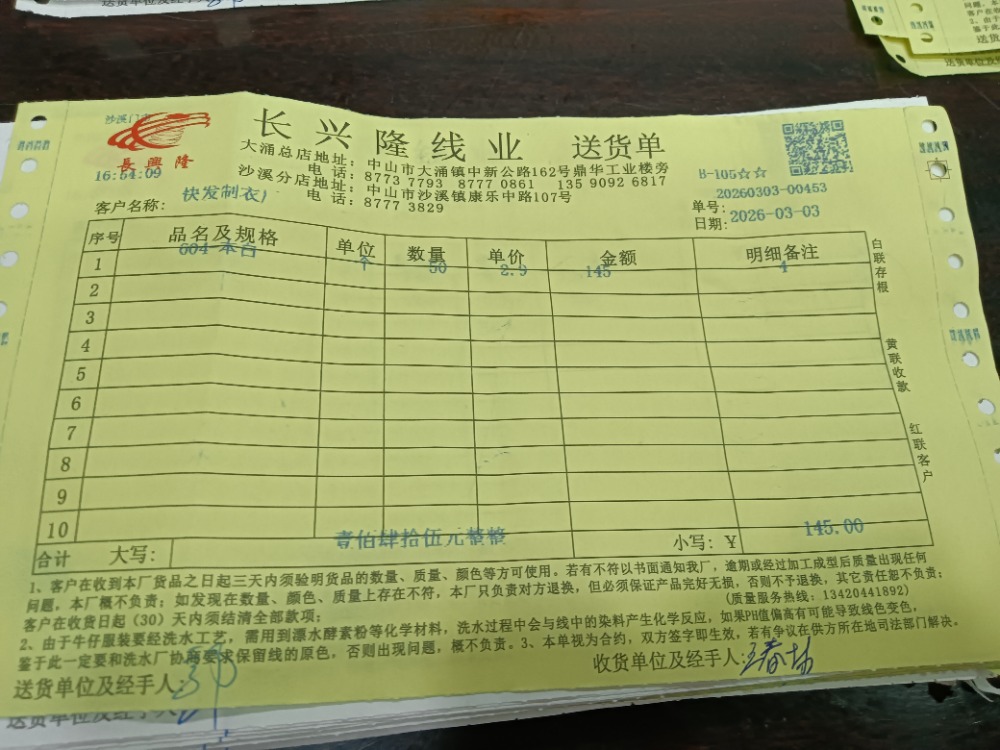 沙溪门
長興隆
16:54:09
长兴隆线业 送货单
大涌总店地址：中山市大涌镇中新公路162号鼎华工业楼旁
电话：8773 7793 8777 0861 135 9092 6817
沙溪分店地址：中山市沙溪镇康乐中路107号
电话：8777 3829
B-105☆☆
20260303-00453
单号：
日期：2026-03-03
客户名称：快发制衣厂
序号 品名及规格 单位 数量 单价 金额 明细备注
1 604-本白 个 50 2.9 145 4
2
3
4
5
6
7
8
9
10
合计 大写：壹佰肆拾伍元整整 小写：¥ 145.00
白联存根
黄联收款
红联客户
1、客户在收到本厂货品之日起三天内须验明货品的数量、质量、颜色等方可使用。若有不符以书面通知我厂，逾期或经过加工成型后质量出现任何
问题，本厂概不负责；如发现在数量、颜色、质量上存在不符，本厂只负责对方退换，但必须保证产品完好无损，否则不予退换，其它责任恕不负责；
客户在收货日起（30）天内须结清全部款项；
(质量服务热线：13420441892)
2、由于牛仔服装要经洗水工艺，需用到漂水酵素粉等化学材料，洗水过程中会与线中的染料产生化学反应，如果PH值偏高有可能导致线色变色，
鉴于此一定要和洗水厂协商要求保留线的原色，否则出现问题，概不负责。3、本单视为合约，双方签字即生效，若有争议在供方所在地司法部门解决。
送货单位及经手人：
收货单位及经手人：